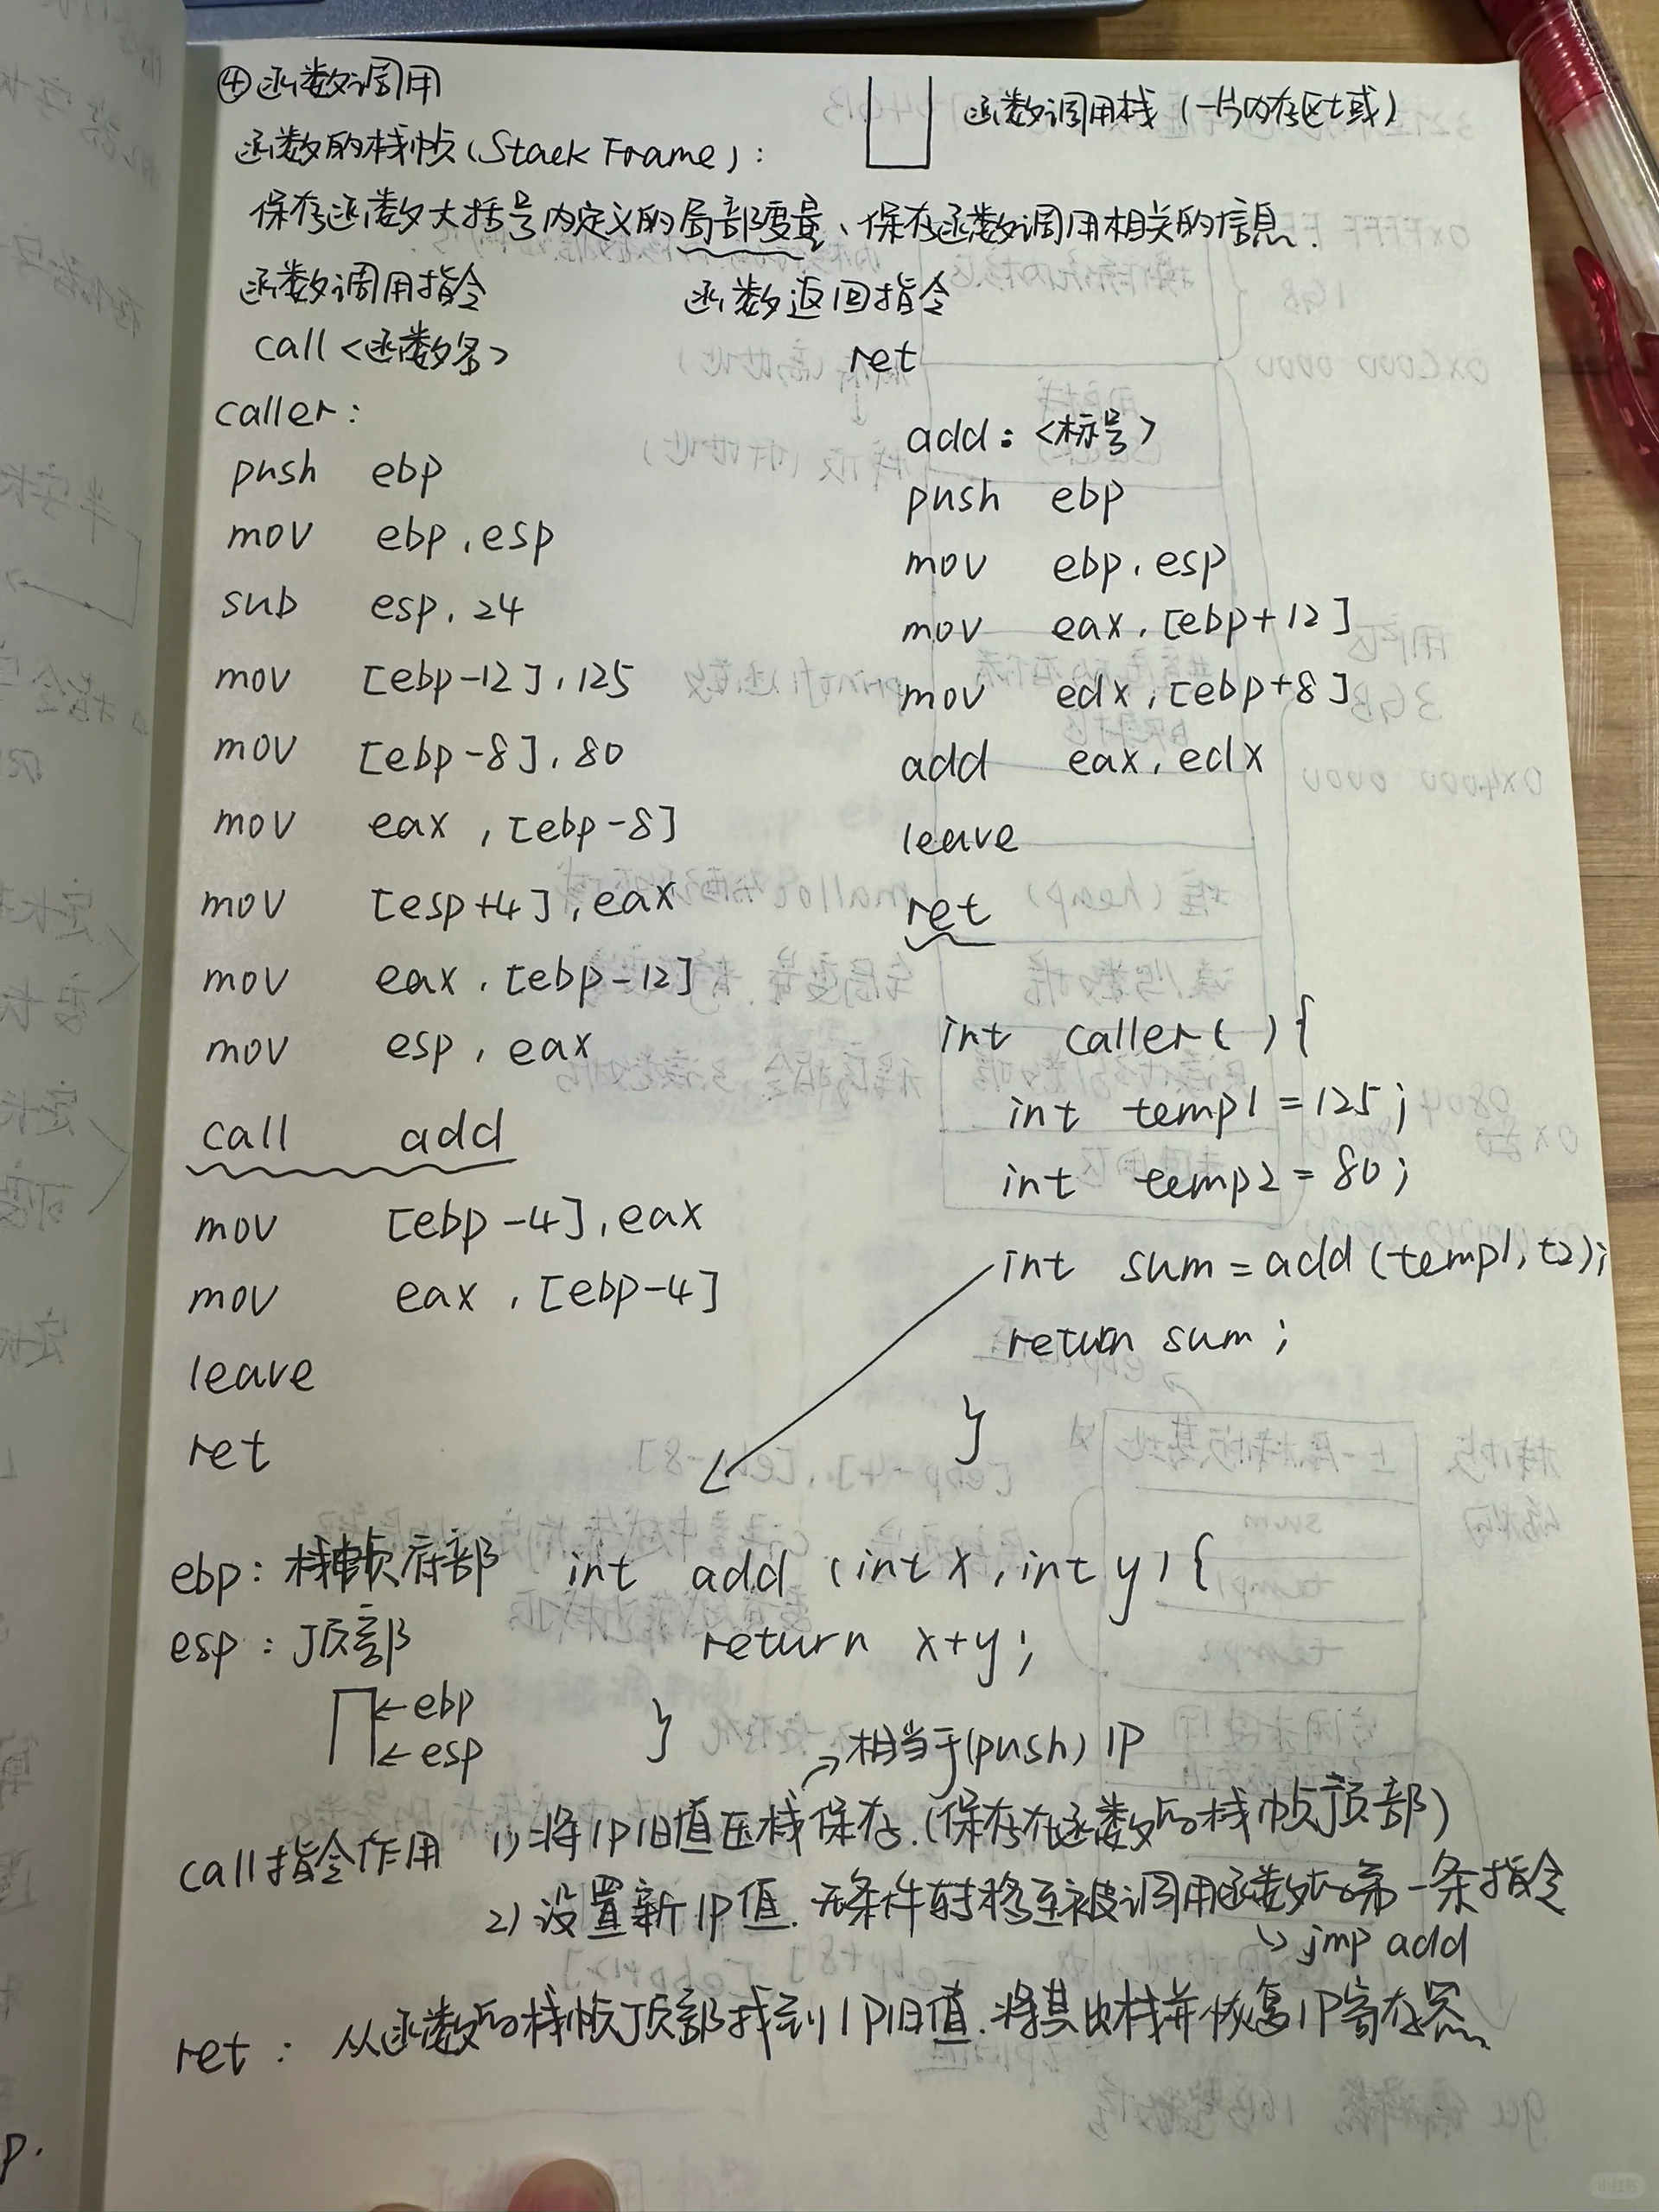 ④函数调用
函数调用栈（一片内存区域）
函数的栈帧（Stack Frame）：
保存函数大括号内定义的局部变量、保存函数调用相关的信息.
函数调用指令 函数返回指令
call <函数名> ret
caller:
push ebp
mov ebp, esp
sub esp, 24
mov [ebp-12], 125
mov [ebp-8], 80
mov eax, [ebp-8]
mov [esp+4], eax
mov eax, [ebp-12]
mov esp, eax
call add
mov [ebp-4], eax
mov eax, [ebp-4]
leave
ret
add: <标号>
push ebp
mov ebp, esp
mov eax, [ebp+12]
mov edx, [ebp+8]
add eax, edx
leave
ret
int caller( ){
int temp1=125;
int temp2=80;
int sum=add(temp1, t2);
return sum;
}
ebp: 栈帧底部
esp: 顶部
←ebp
←esp
int add (int x, int y){
return x+y;
}
相当于(push) IP
call指令作用 1) 将IP旧值压栈保存.(保存在函数的栈帧顶部)
2) 设置新IP值.无条件转移至被调用函数的第一条指令
↳ jmp add
ret: 从函数的栈帧顶部找到IP旧值.将其出栈并恢复IP寄存器
小红书